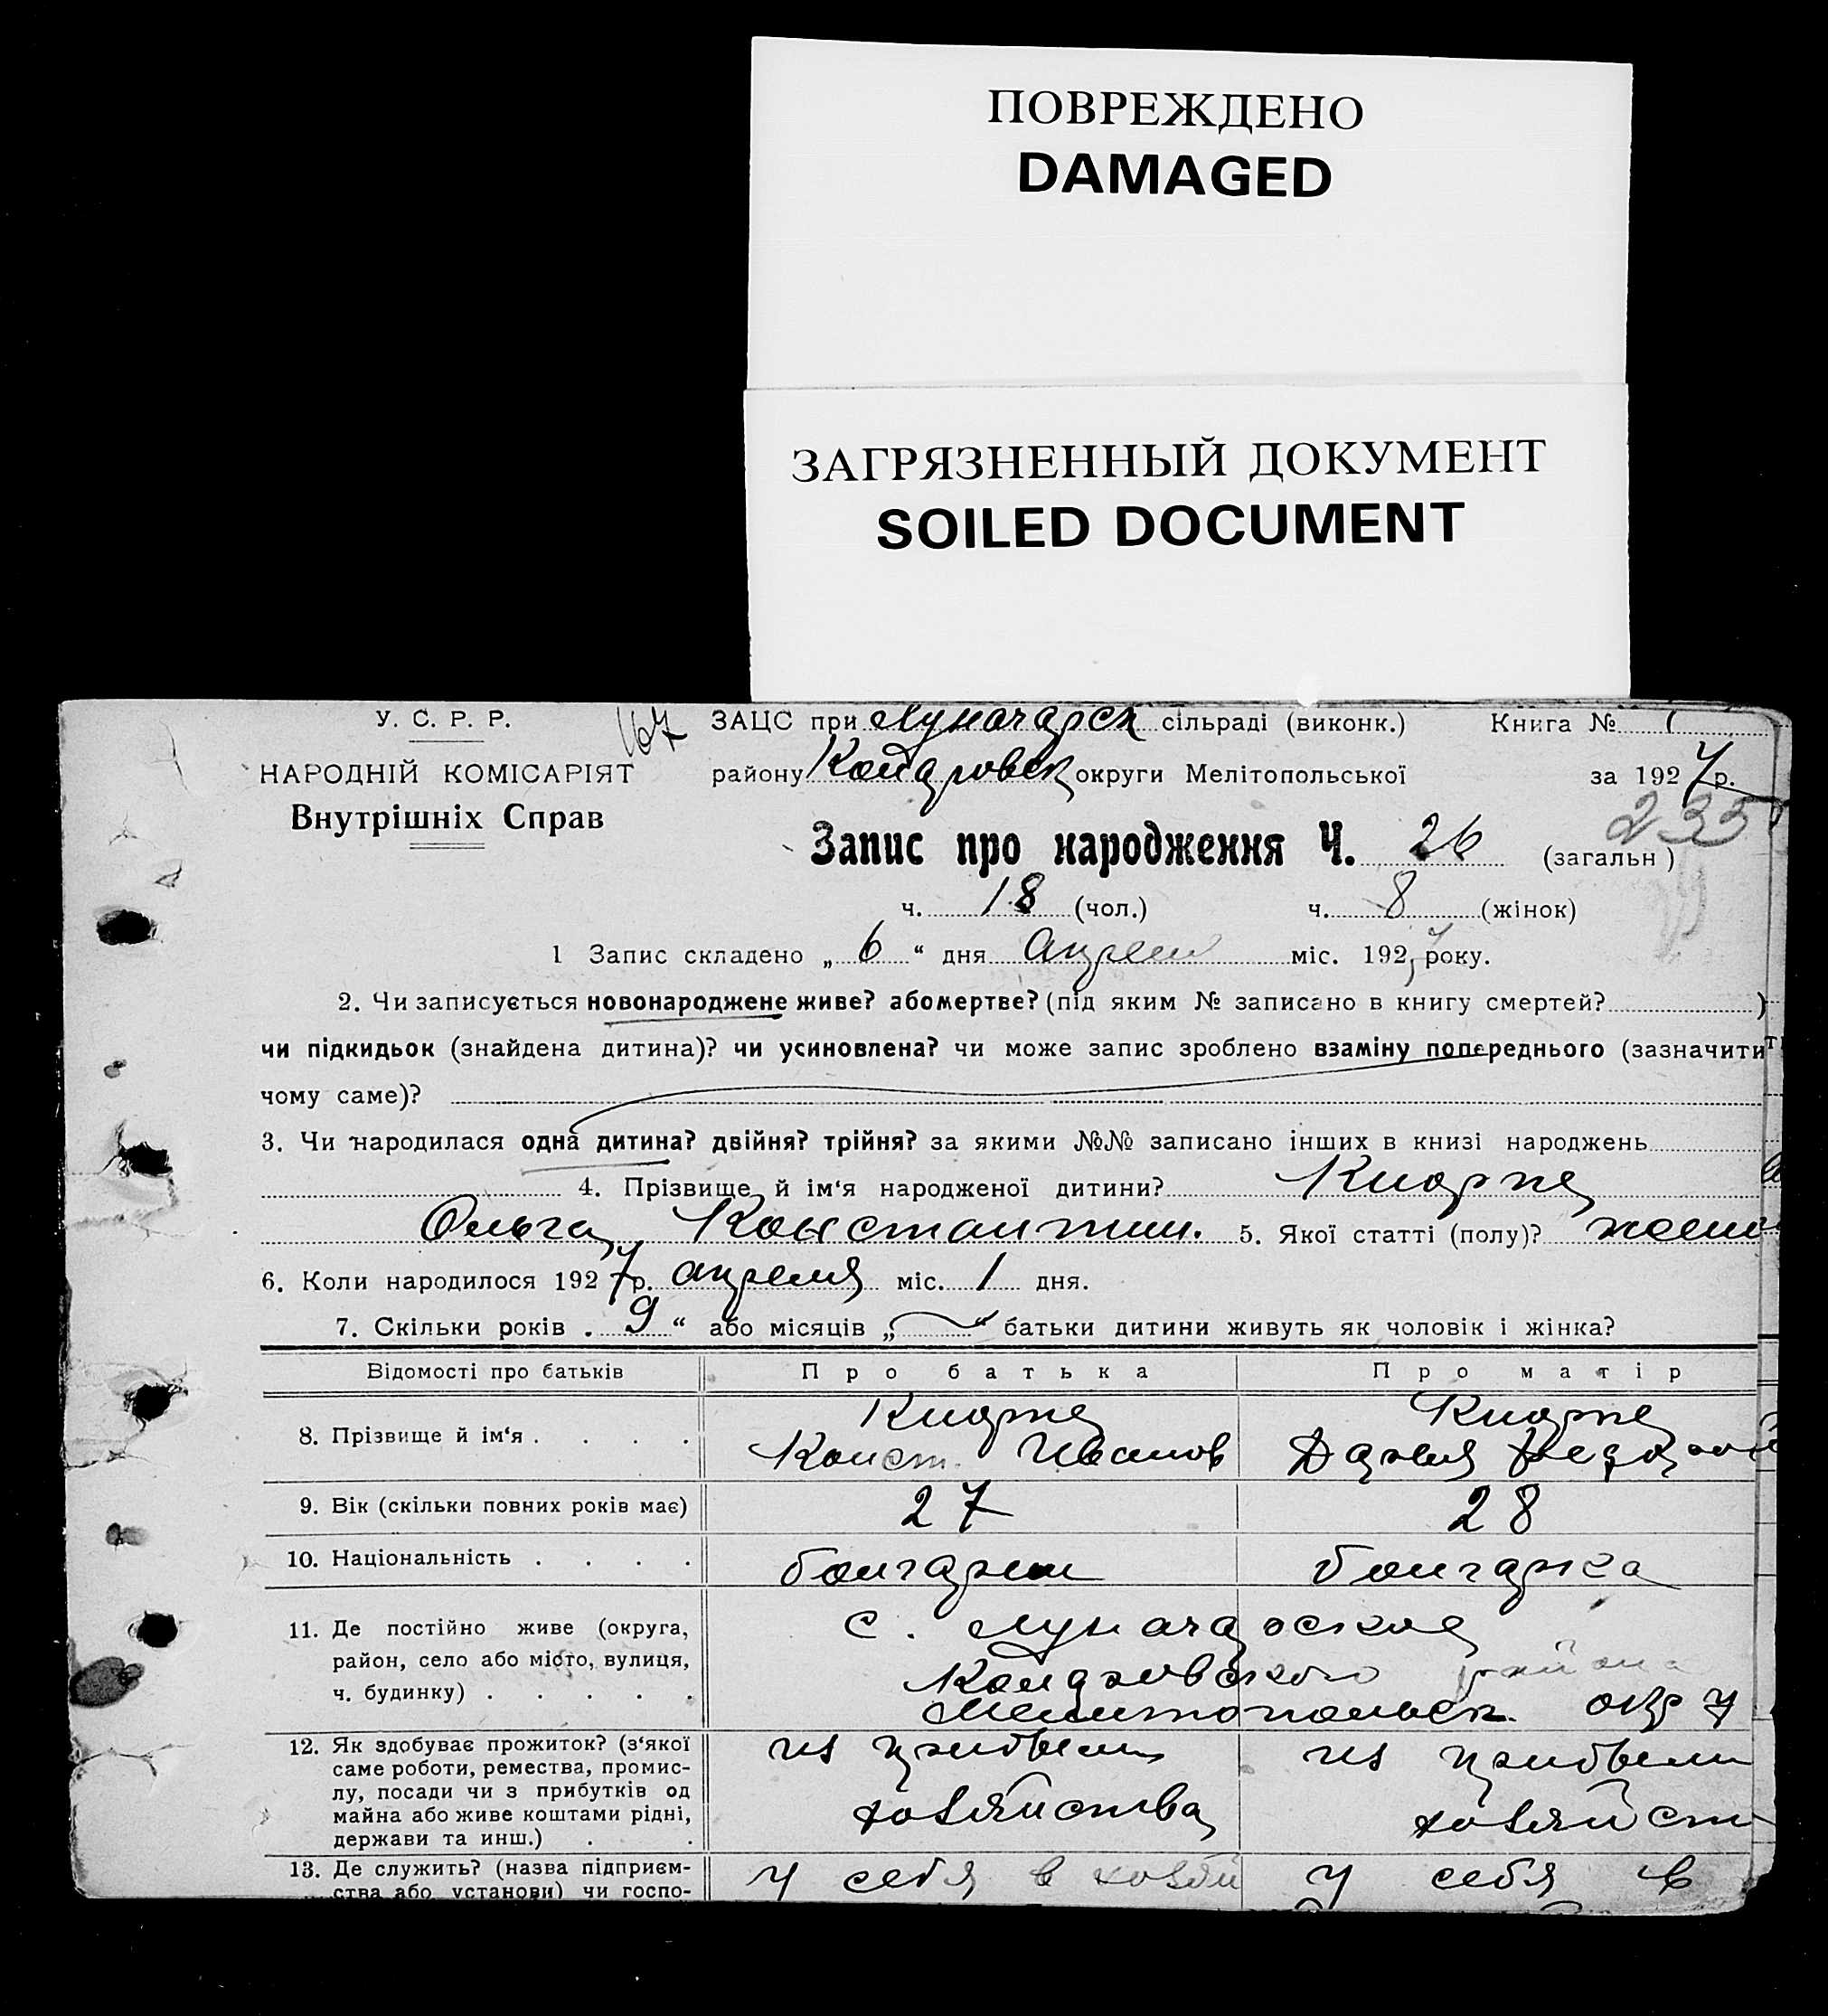 ПОВРЕЖДЕНО
DAMAGED
ЗАГРЯЗНЕННЫЙ ДОКУМЕНТ
SOILED DOCUMENT
У. С. Р. Р.
НАРОДНІЙ КОМІСАРІЯТ
Внутрішніх Справ
167
ЗАЦС при Луначарск сільраді (виконк.) Книга № 1
району округи Мелітопольської за 1927 р.
235
Запис про народження Ч. 26 (загальн)
ч. 18 (чол.) ч. 8 (жінок)
1 Запис складено „ 6 “ дня апреля міс. 1927 року.
2. Чи записується новонароджене живе? або мертве? (під яким № записано в книгу смертей? )
чи підкидьок (знайдена дитина)? чи усиновлена? чи може запис зроблено взаміну попереднього (зазначити
чому саме)?
3. Чи народилася одна дитина? двійня? трійня? за якими №№ записано інших в книзі народжень
4. Прізвище й ім‘я народженої дитини? Киорпе
Ольга Константин. 5. Якої статті (полу)? женс
6. Коли народилося 1927 р. апреля міс. 1 дня.
7. Скільки років „ 9 “ або місяців „ “ батьки дитини живуть як чоловік і жінка?
Відомості про батьків Про батька Про матір
8. Прізвище й ім‘я . . . .
Конст. Иванов Дарья
9. Вік (скільки повних років має) 27 28
10. Національність . . . . болгарин болгарка
11. Де постійно живе (округа, с. Луначарское
район, село або місто, вулиця, района
ч. будинку) . . . . . Мелитопольск. окр
12. Як здобуває прожиток? (з‘якої из прибыли из прибыли
саме роботи, ремества, промис-
лу, посади чи з прибутків од хозяйства хозяйст
майна або живе коштами рідні,
держави та инш.) . .
13. Де служить? (назва підприєм- у себя в хозяй у себя в
ства або установи) чи госпо-